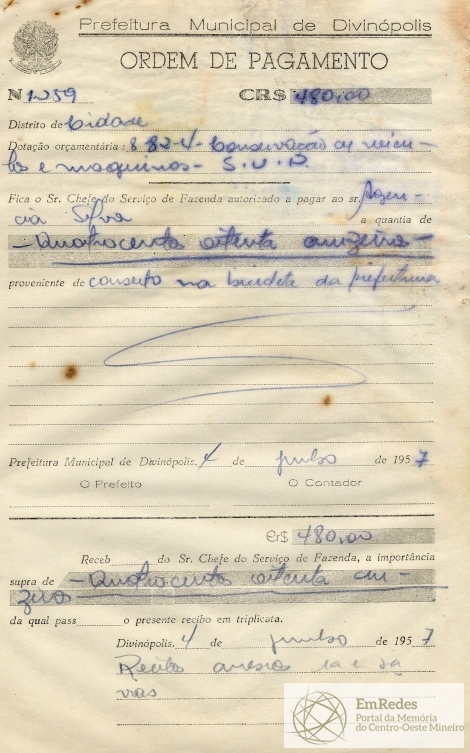 Prefeitura Municipal de Divinópolis
ORDEM DE PAGAMENTO
N 1259 CR$ 480,00
Distrito de Cidade
Dotação orçamentária: 8 82-4- Conservação de veicu-
los e maquinas- S.V.P.
Fica o Sr. Chefe do Serviço de Fazenda autorizado a pagar ao sr. Agen-
cia Silva a quantia de
- Quatrocentos oitenta cruzeiros -
proveniente de conserto na bicicleta da prefeitura
Prefeitura Municipal de Divinópolis, 4 de de 1957
O Prefeito O Contador
Cr$ 480,00
Receb do Sr. Chefe do Serviço de Fazenda, a importância
supra de - Quatrocentos oitenta cru-
zeiros -
da qual pass o presente recibo em triplicata.
Divinópolis, 4 de de 1957
Recibo anexo 1a e 2a
vias
EmRedes
Portal da Memória
do Centro-Oeste Mineiro